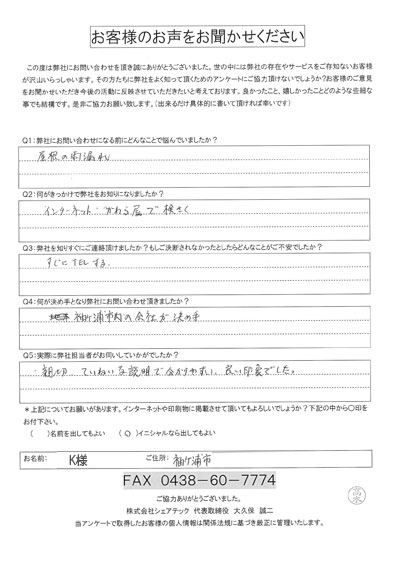 お客様のお声をお聞かせください
この度は弊社にお問い合わせを頂き誠にありがとうございました。世の中には弊社の存在やサービスをご存知ないお客様
が沢山いらっしゃいます。その方たちに弊社をよく知って頂くためのアンケートにご協力頂けないでしょうか?お客様のご意見
をお聞かせいただき今後の活動に反映させていただきたいと考えております。良かったこと、嬉しかったことどのような些細な
事でも結構です。是非ご協力お願い致します。(出来るだけ具体的に書いて頂ければ幸いです)
Q1:弊社にお問い合わせになる前にどんなことで悩んでいましたか?
屋根の雨漏れ
Q2:何がきっかけで弊社をお知りになりましたか?
インターネット・かわら屋で検さく
Q3:弊社を知りすぐにご連絡頂けましたか?もしご決断されなかったとしたらどんなことがご不安でしたか?
すぐにTELする。
Q4:何が決め手となり弊社にお問い合わせ頂きましたか?
袖ケ浦市内の会社が決め手
Q5:実際に弊社担当者がお伺いしていかがでしたか?
・親切 ていねいな説明で分かりやすい、良い印象でした。
*上記についてお願いがあります。インターネットや印刷物に掲載させて頂いてもよろしいでしょうか?下記の中から〇印を
お付下さい。
( )名前を出してもよい (○)イニシャルなら出してもよい
お名前: K様 ご住所: 袖ケ浦市
FAX 0438-60-7774
ご協力ありがとうございました。
株式会社シェアテック 代表取締役 大久保 誠二
当アンケートで取得したお客様の個人情報は関係法規に基づき厳正に管理いたします。